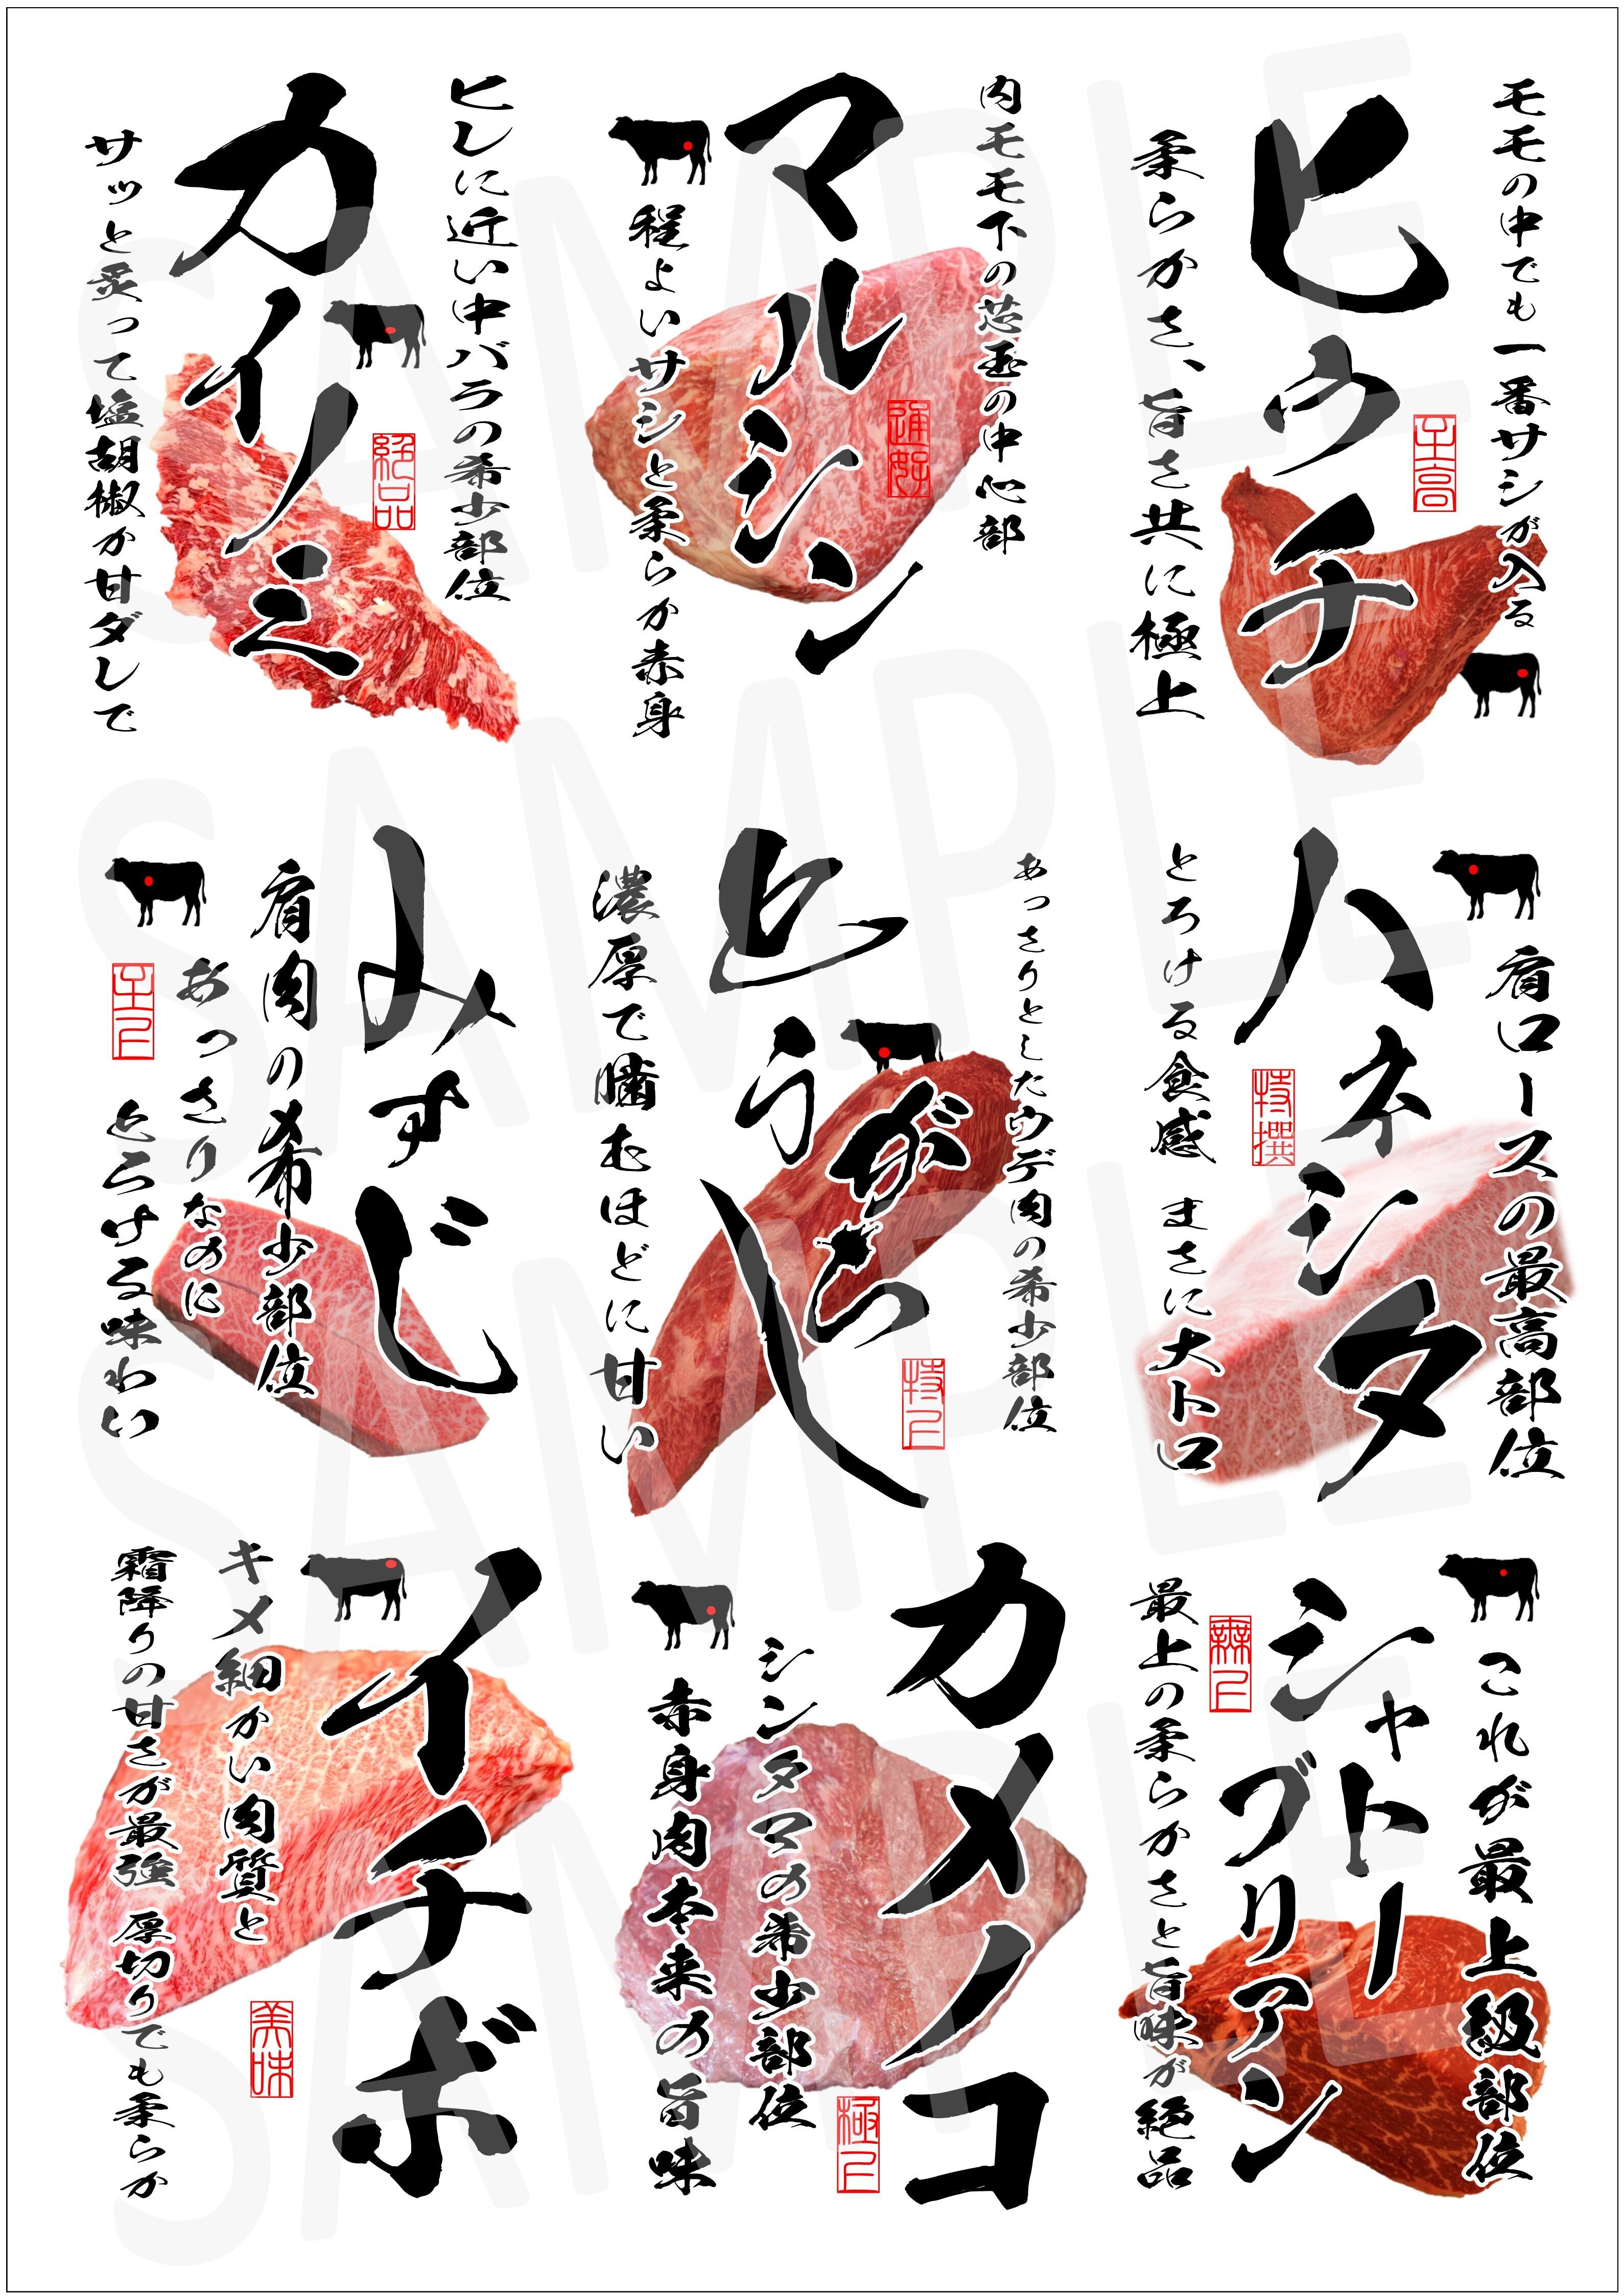 ヒウチ
モモの中でも一番サシが入る
柔らかさ、旨さ共に極上
至高
マルシン
内モモ下の芯玉の中心部
程よいサシと柔らか赤身
通好
カイノミ
ヒレに近い中バラの希少部位
サッと炙って塩胡椒か甘ダレで
絶品
ハネシタ
肩ロースの最高部位
とろける食感 まさに大トロ
特撰
とうがらし
あっさりとしたウデ肉の希少部位
濃厚で噛むほどに甘い
特上
みすじ
肩肉の希少部位
あっさりなのに
とろける味わい
至上
シャトーブリアン
これが最上級部位
最上の柔らかさと旨味が絶品
カメノコ
シンタマの希少部位
赤身肉本来の旨味
極上
イチボ
キメ細かい肉質と
霜降りの甘さが最強 厚切りでも柔らか
美味
SAMPLE
SAMPLE
SAMPLE
SAMPLE